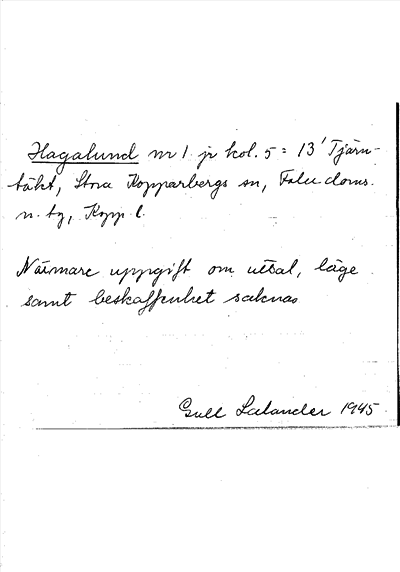 Hagalund nr 1 jr kol. 5 = 13' Tjärn-
täkt, Stora Kopparbergs sn, Falu doms.
n. tg, Kopp. l.
Närmare uppgift om uttal, läge
samt beskaffenhet saknas
Gull Lalander 1945